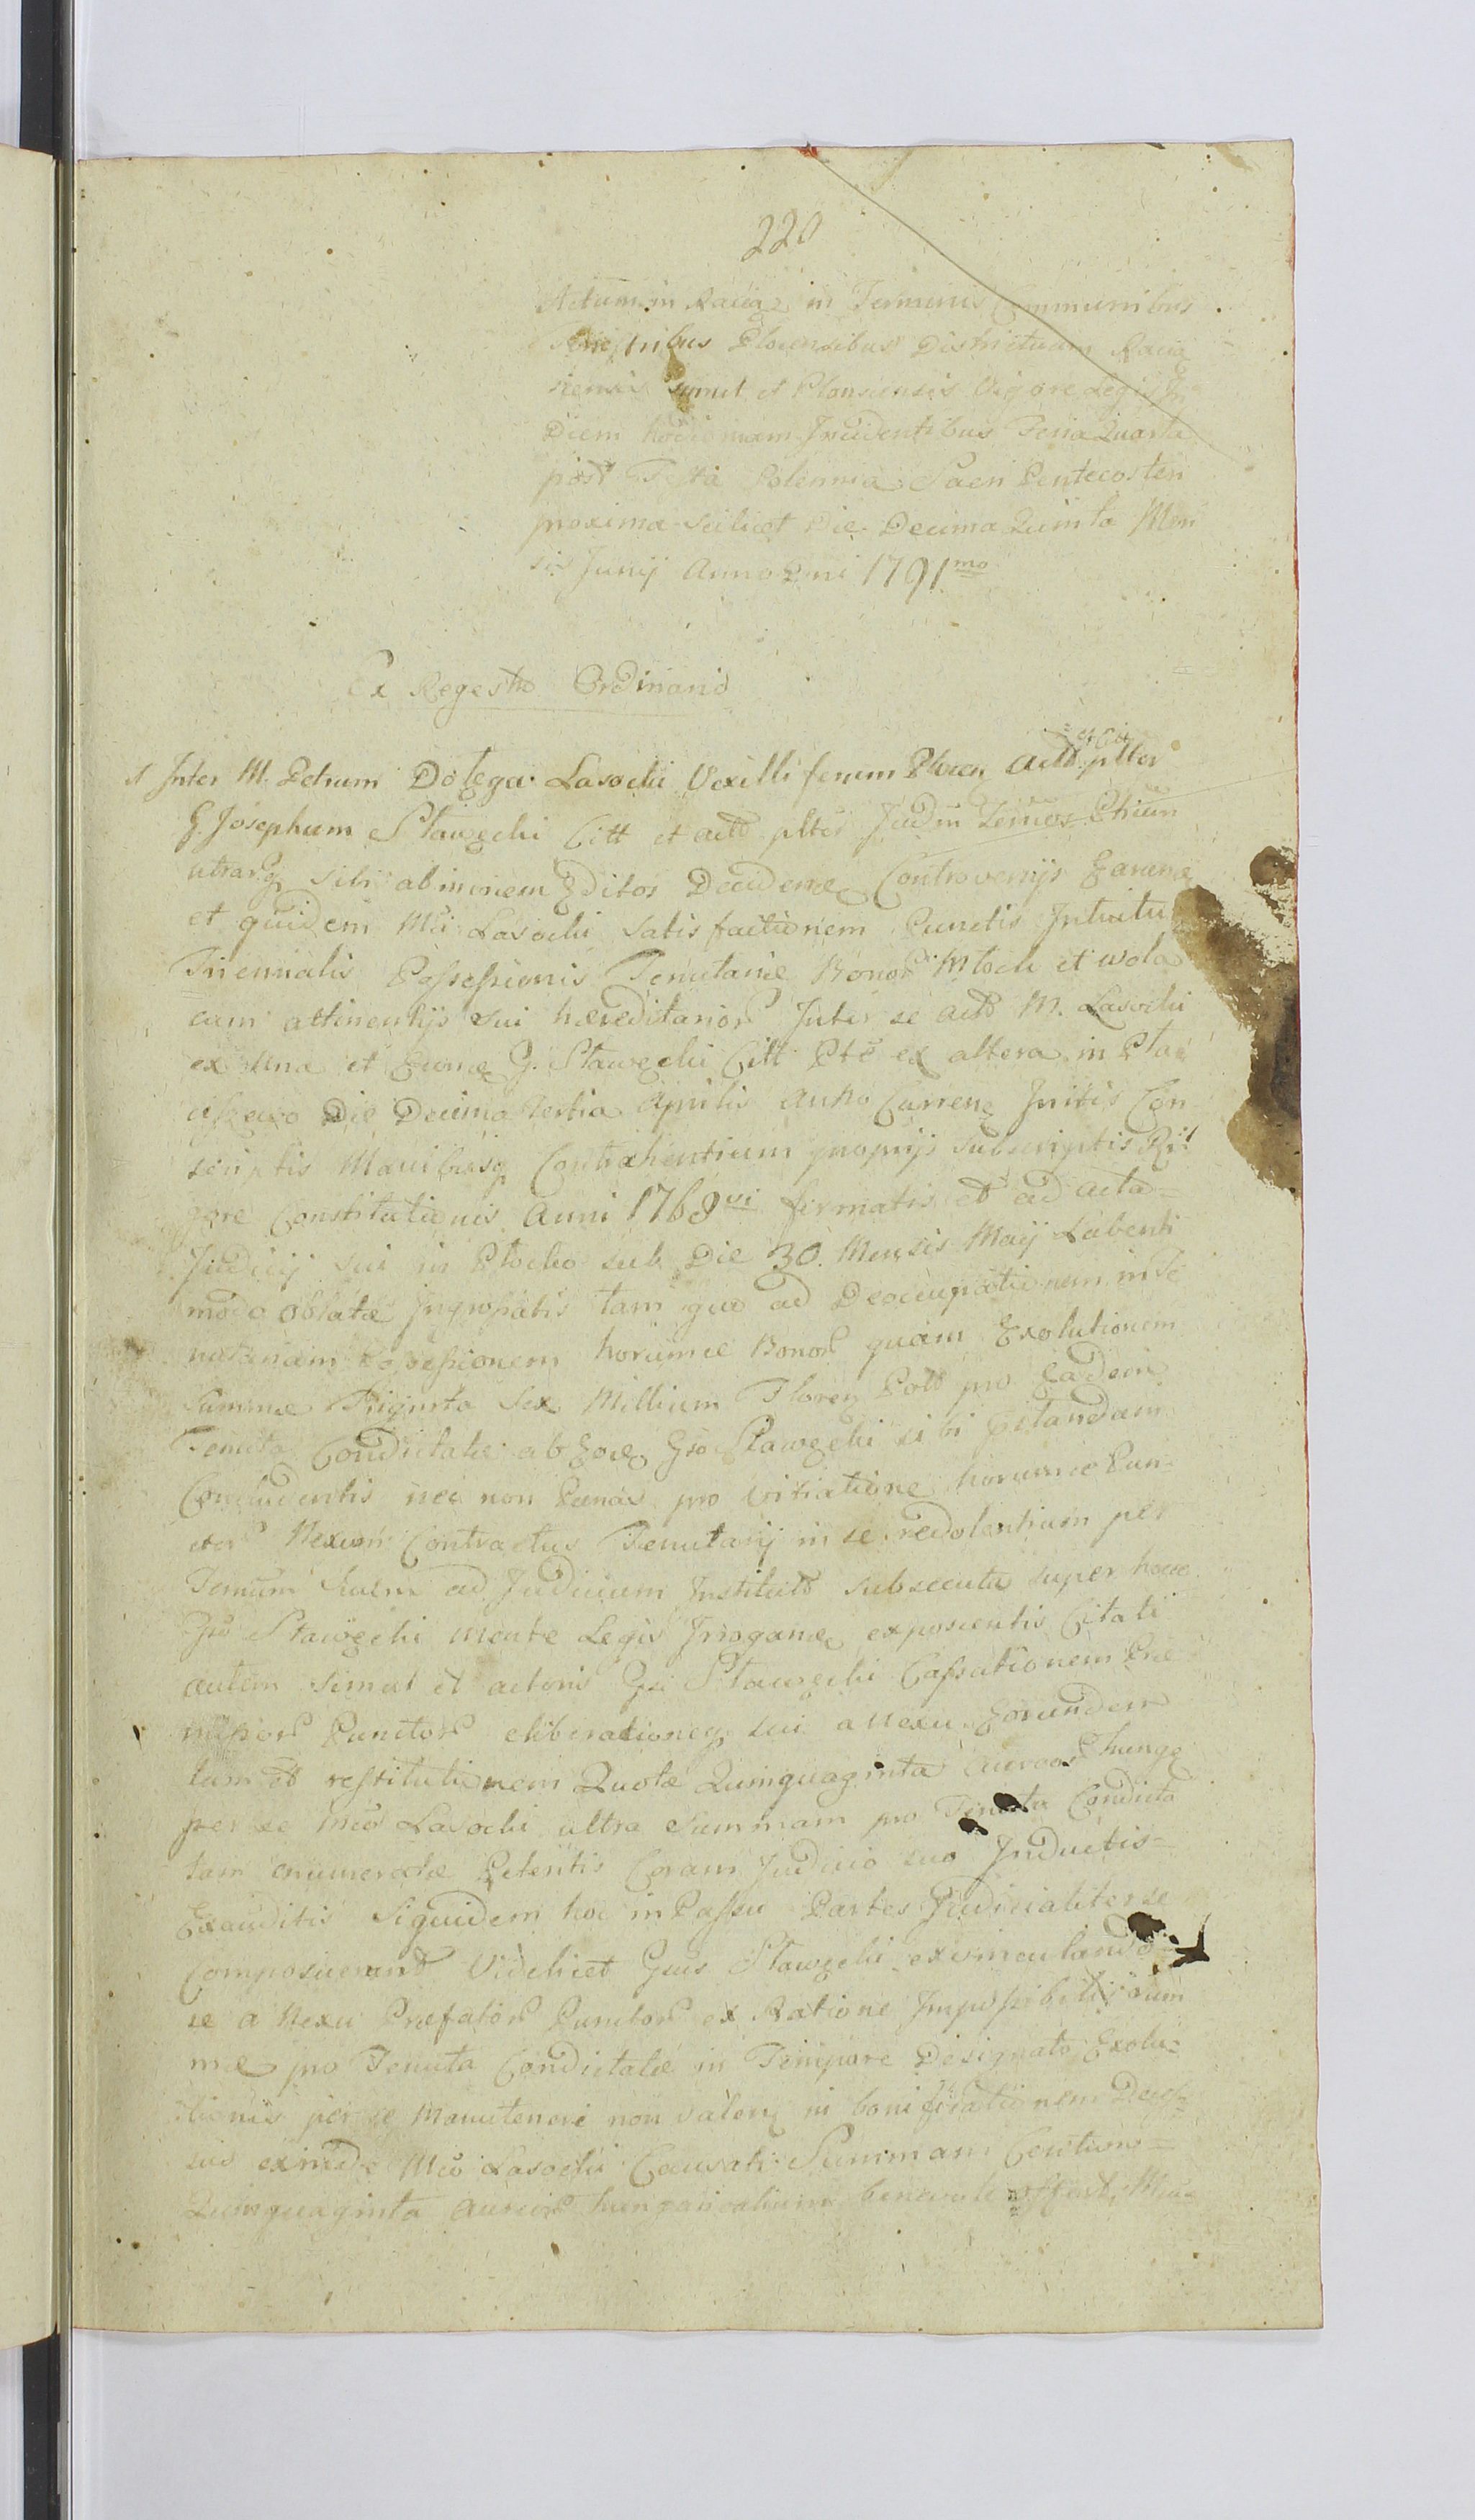 220
Actum in Raciąz in Terminis Communibus
Terrestribus Plocensibus Districtuum Raciąz
nensis simul et Plonscensis Vigore Legis In
Diem hodiernam Incidentibus Feria Quarta
post Festa Solennia Sacri Pentecosten
proxima scilicet Die Decima Quinta Men
sis Junij Anno Dni 1791mo
Ex Regestro Ordinario
1 Inter M. Petrum Dołęga Lasocki Vexilliferum Plocen Actt pltor
et Citt
G. Josephum Sławęcki Citt et actt pltor Judm Terrios Ptium
utrarq sibi ab invicem Editos Decidendae Controversijs
et quidem Mci Lasocki satisfactionem Punctis Intuitu
Triennalis Possessionis Tenutariae Bonor Mlock et Wola
cum attinentijs sui haereditarior Inter se actt M. Lasocki
ex una et G. Sławęcki Citt Pte ex altera in
Die Decima tertia Aprilis Anno Curren Initis Con
scriptis Manibusq Contrahentium proprijs subscriptis Ri
gore Constitutionis Anni 1768vi firmatis et ad acta
Judicij sui in Płocko sub Die 30. Mensis Maij Labenti
modo oblatae tam qua ad Deoccupationem in Te
nutariam Possessionem horumce Bonor quam Exolutionem
Summae Triginta Sex Millium Floren Poll pro Eadem
Tenuta Condictatae ab Gso Sławęcki sibi
Concludentis nec non Paenas pro Vitiatione horumce Pun
ctor Nexum Contractus Tenutarij in se redolentium per
ad Judicium subsecuta super hocce
Gso Sławęcki mente Legis Irrogan exposcentis Citati
autem simul et actoris Gsi Sławęcki Cassationem Prae
missor Punctor eliberationeq sui a nexu Eorundem
tum et restitutionem Quotae Quinquaginta aureos
per se Mco Lasocki ultra Summam pro Tenuta Condicta
tam enumeratae Petentis Coram Judicio suo Inductis
Exauditis Siquidem hoc in Passu Partes Judicialiter se
composuerunt Videlicet Gsus Sławęcki exvinculando
se a Nexu Praefator Punctor ex Ratione
mae pro Tenuta Condictatae in Tempore Designato Exolu
tionis per se Manutenere non valen in bonificationem
exinde Mco Lasocki Causati Summam Centum
Quinquaginta Aureor hungaricalium benevole offert,